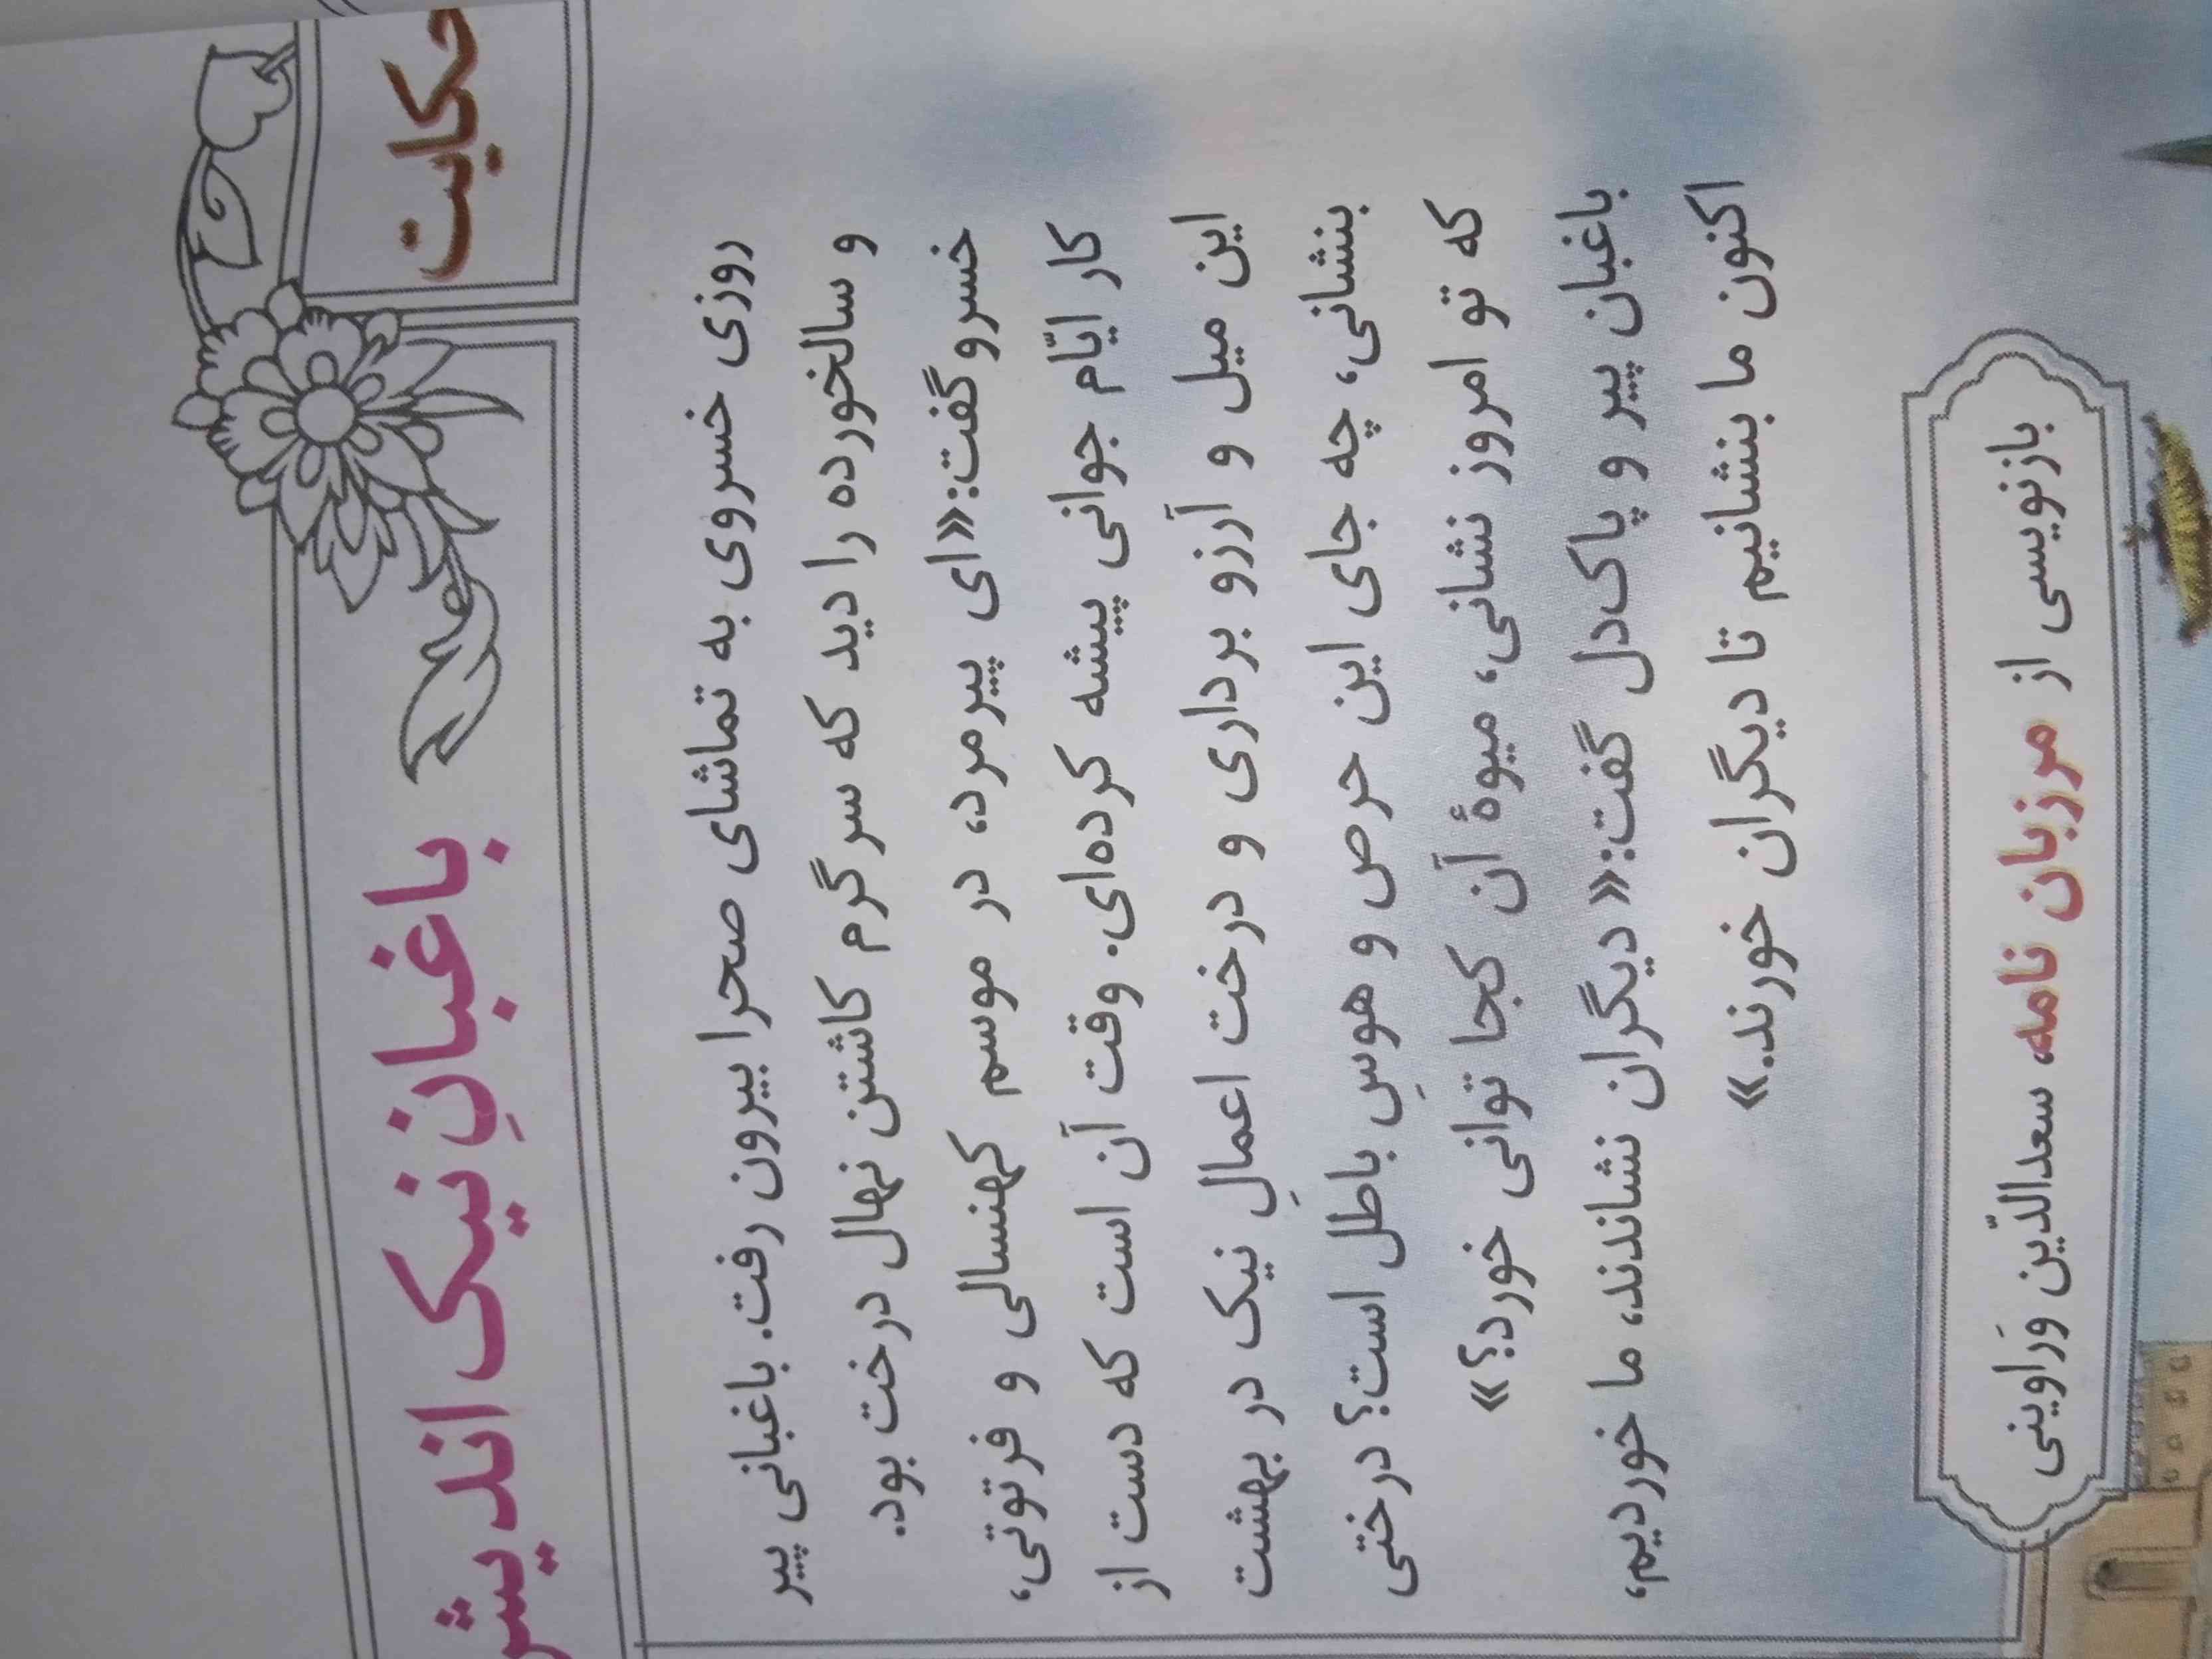 حکایت
باغبانِ نیک اندیش
روزی خسروی به تماشای صحرا بیرون رفت. باغبانی پیر
و سالخورده را دید که سرگرم کاشتن نهال درخت بود.
خسرو گفت: «ای پیرمرد، در موسم کهنسالی و فرتوتی،
کار ایّام جوانی پیشه کرده‌ای. وقت آن است که دست از
این میل و آرزو برداری و درخت اعمالِ نیک در بهشت
بنشانی، چه جای این حرص و هوسِ باطل است؟ درختی
که تو امروز نشانی، میوهٔ آن کجا توانی خورد؟»
باغبان پیر و پاک‌دل گفت: «دیگران نشاندند، ما خوردیم،
اکنون ما بنشانیم تا دیگران خورند.»
بازنویسی از مرزبان نامه، سعدالدّین وَراوینی